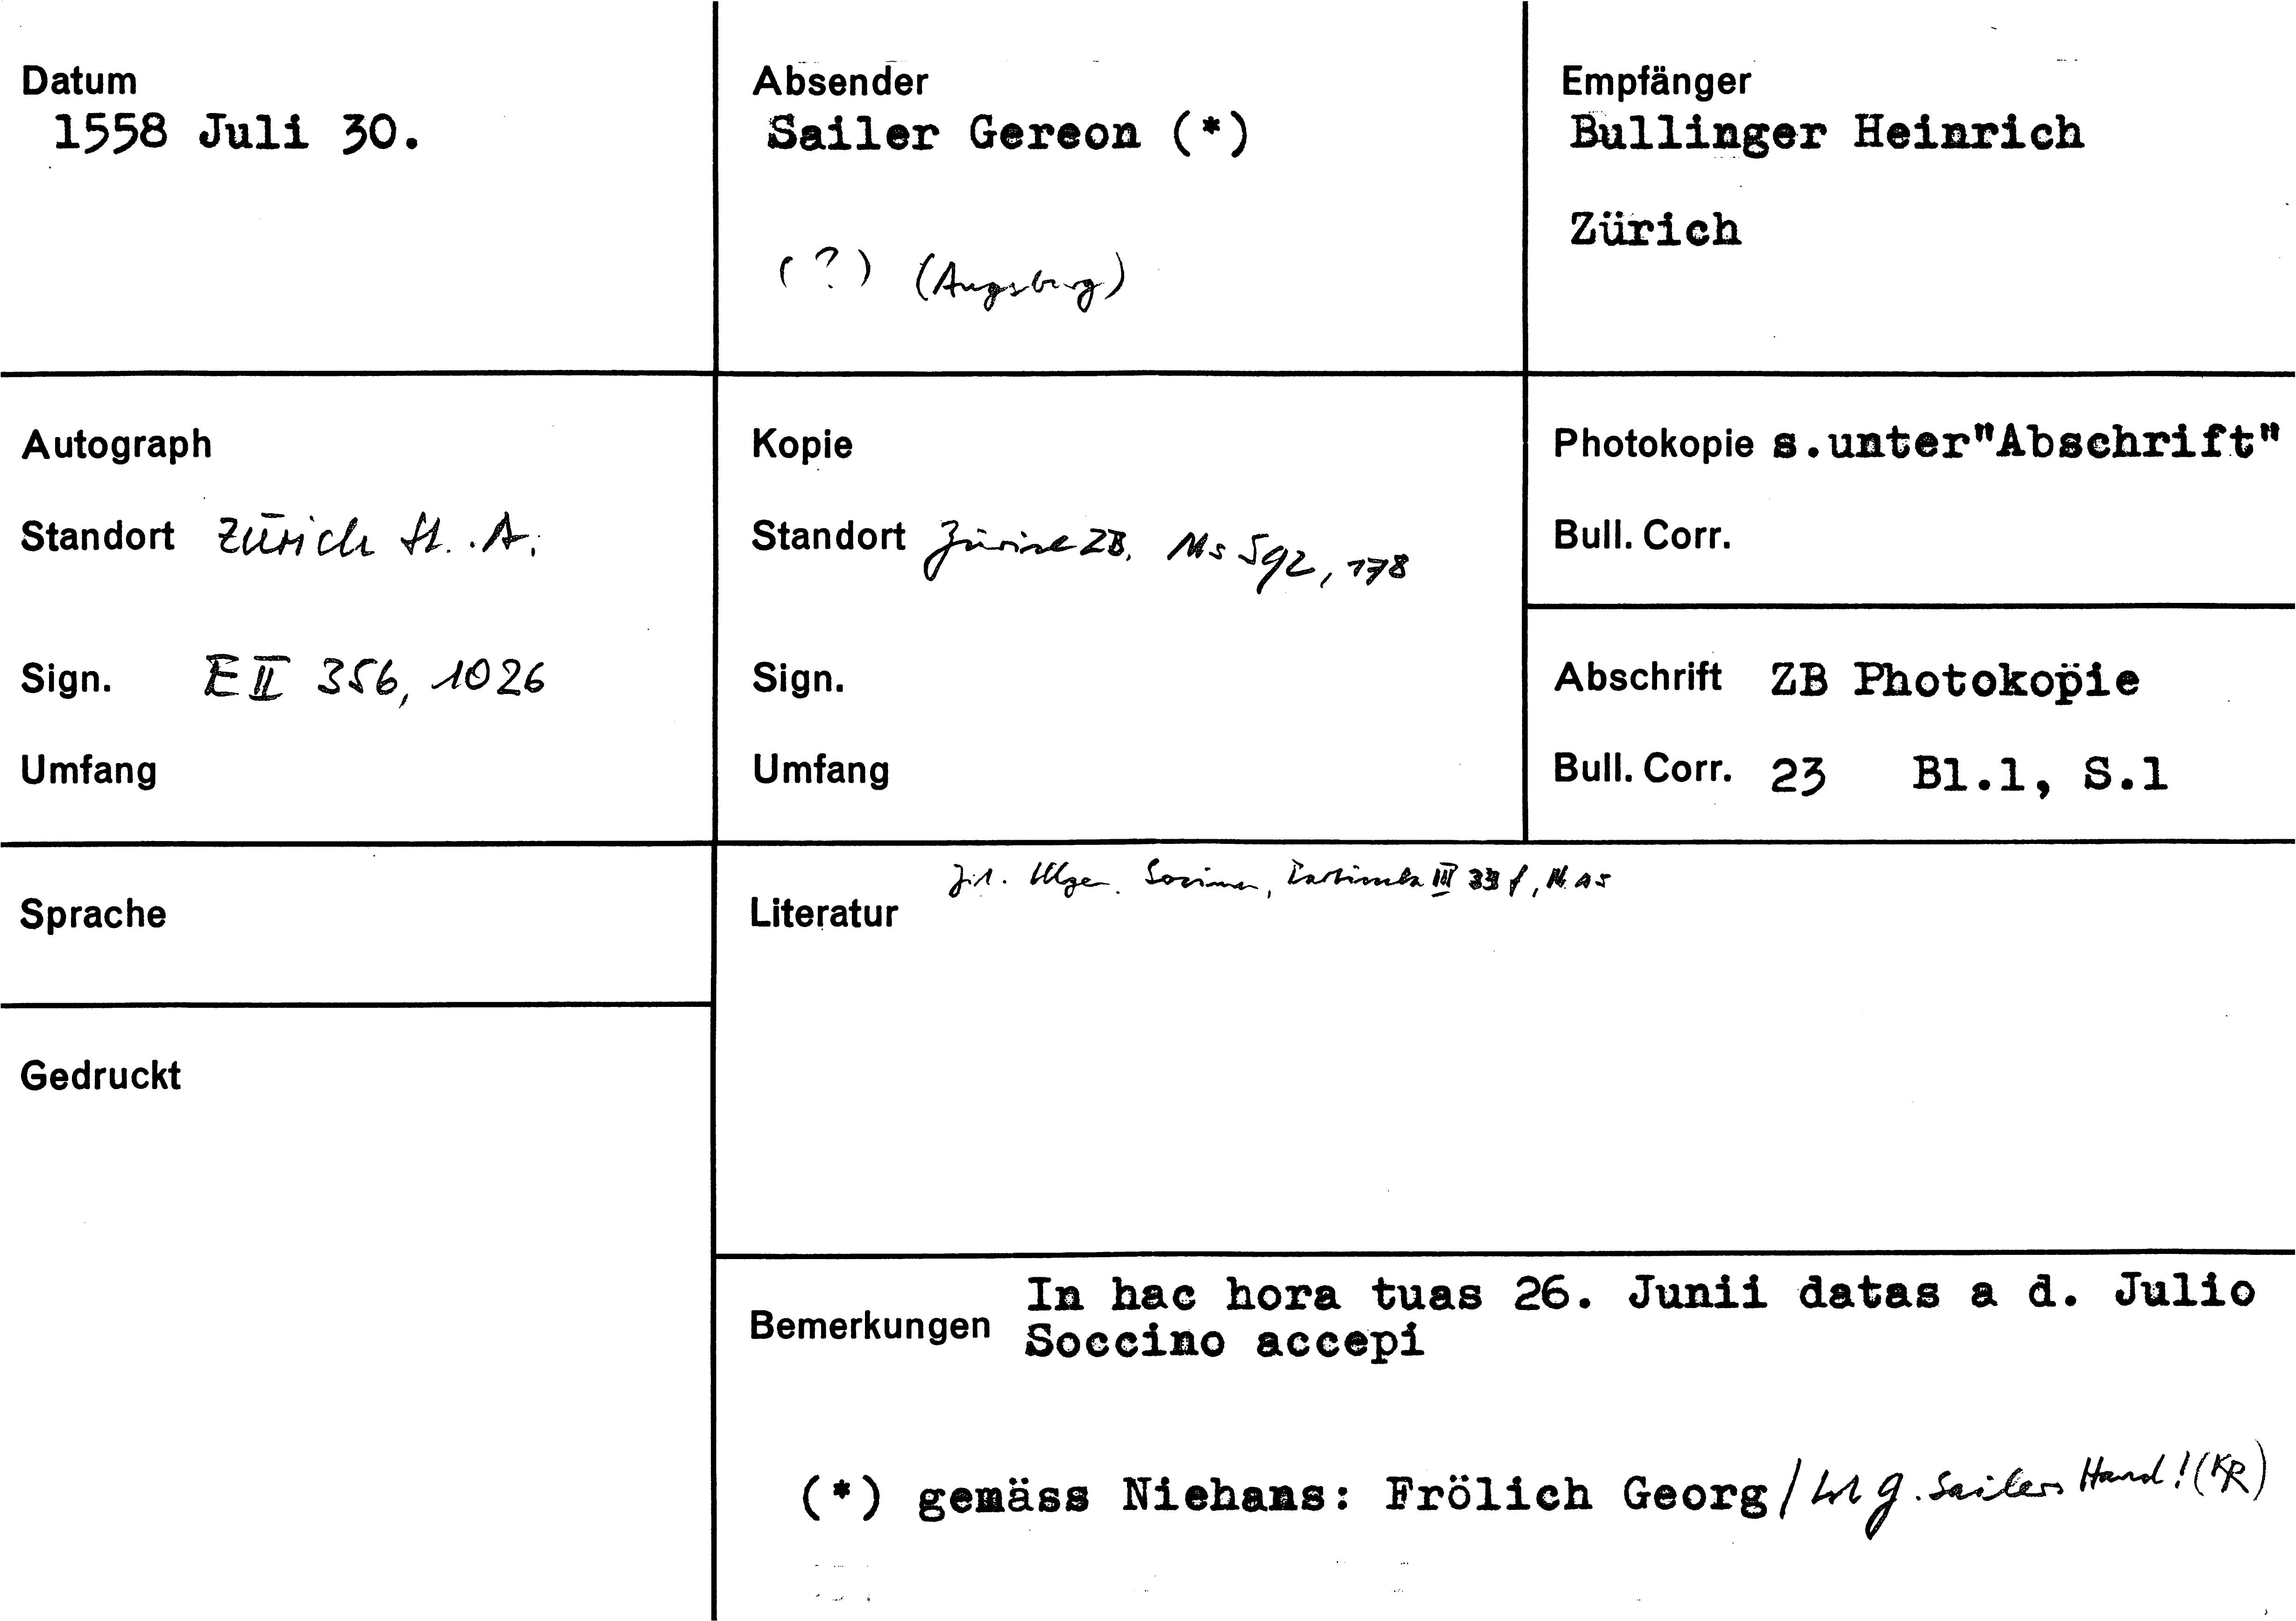 Datum
1558 Juli 30.
Absender
Sailer Gereon (*)
(?) (Augsburg)
Empfänger
Bullinger Heinrich
Zürich
Autograph
Standort Zürich St.A.
Sign. E II 356, 1026
Umfang
Kopie
Standort Zürich ZB, Ms S 92, 178
Sign.
Umfang
Photokopie s.unter"Abschrift"
Bull. Corr.
Abschrift ZB Photokopie
Bull. Corr. 23 Bl.1, S.1
Sprache
Gedruckt
III 33 f,
Literatur
In hac hora tuas 26. Junii datas a d. Julio
Bemerkungen Soccino accepi
(*) gemäss Niehans: Frölich Georg / G. Sailers Hand! (KR)